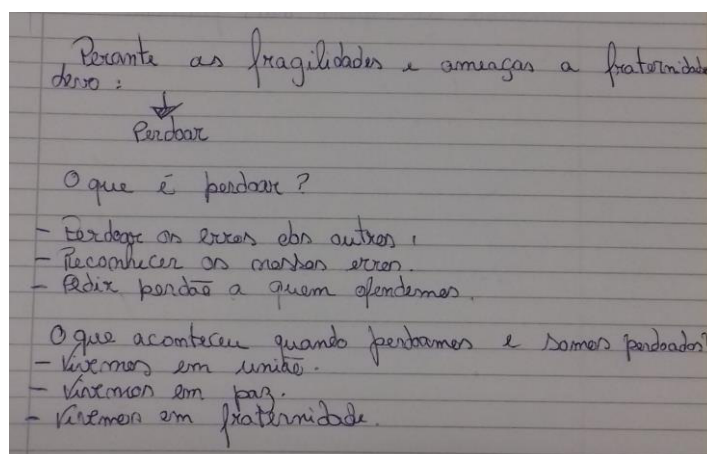 Perante as fragilidades e ameaças a fraternidade
devo:
Perdoar
O que é perdoar?
- Perdoar os erros dos outros.
- Reconhecer os nossos erros.
- Pedir perdão a quem ofendemos.
O que aconteceu quando perdoamos e somos perdoados?
- Vivemos em união.
- Vivemos em paz.
- Vivemos em fraternidade.